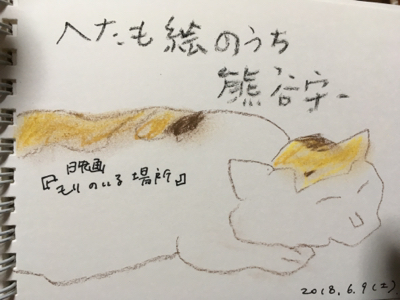 へたも絵のうち
熊谷守一
映画
『モリのいる場所』
2018.6.9(土)